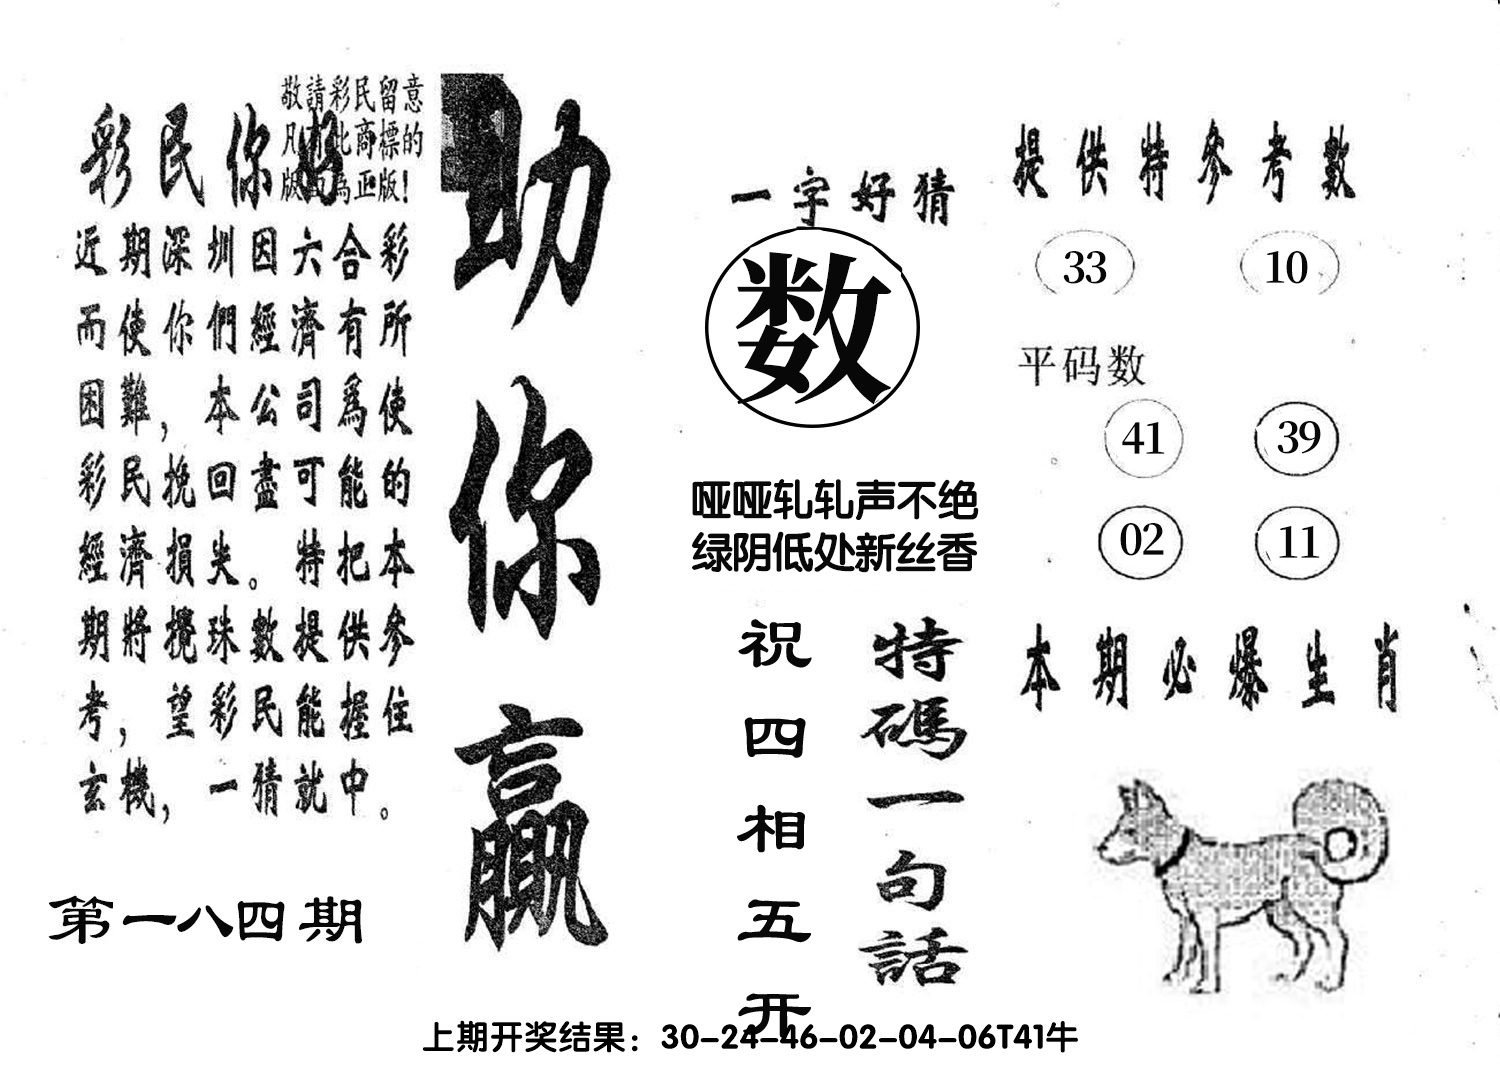 敬請彩民留意
凡有此商標的
版面為正版!
彩民你好
近期深圳因六合彩
而使你們經濟有所
困難，本公司爲使
彩民挽回盡可能的
經濟損失。特把本
期將攪珠數提供參
考，望彩民能握住
玄機，一猜就中。
第一八四期
助你贏
一字好猜
数
哑哑轧轧声不绝
绿阴低处新丝香
特碼一句話
祝四相五开
提供特參考數
33 10
平码数
41 39
02 11
本期必爆生肖
上期开奖结果：30-24-46-02-04-06T41牛